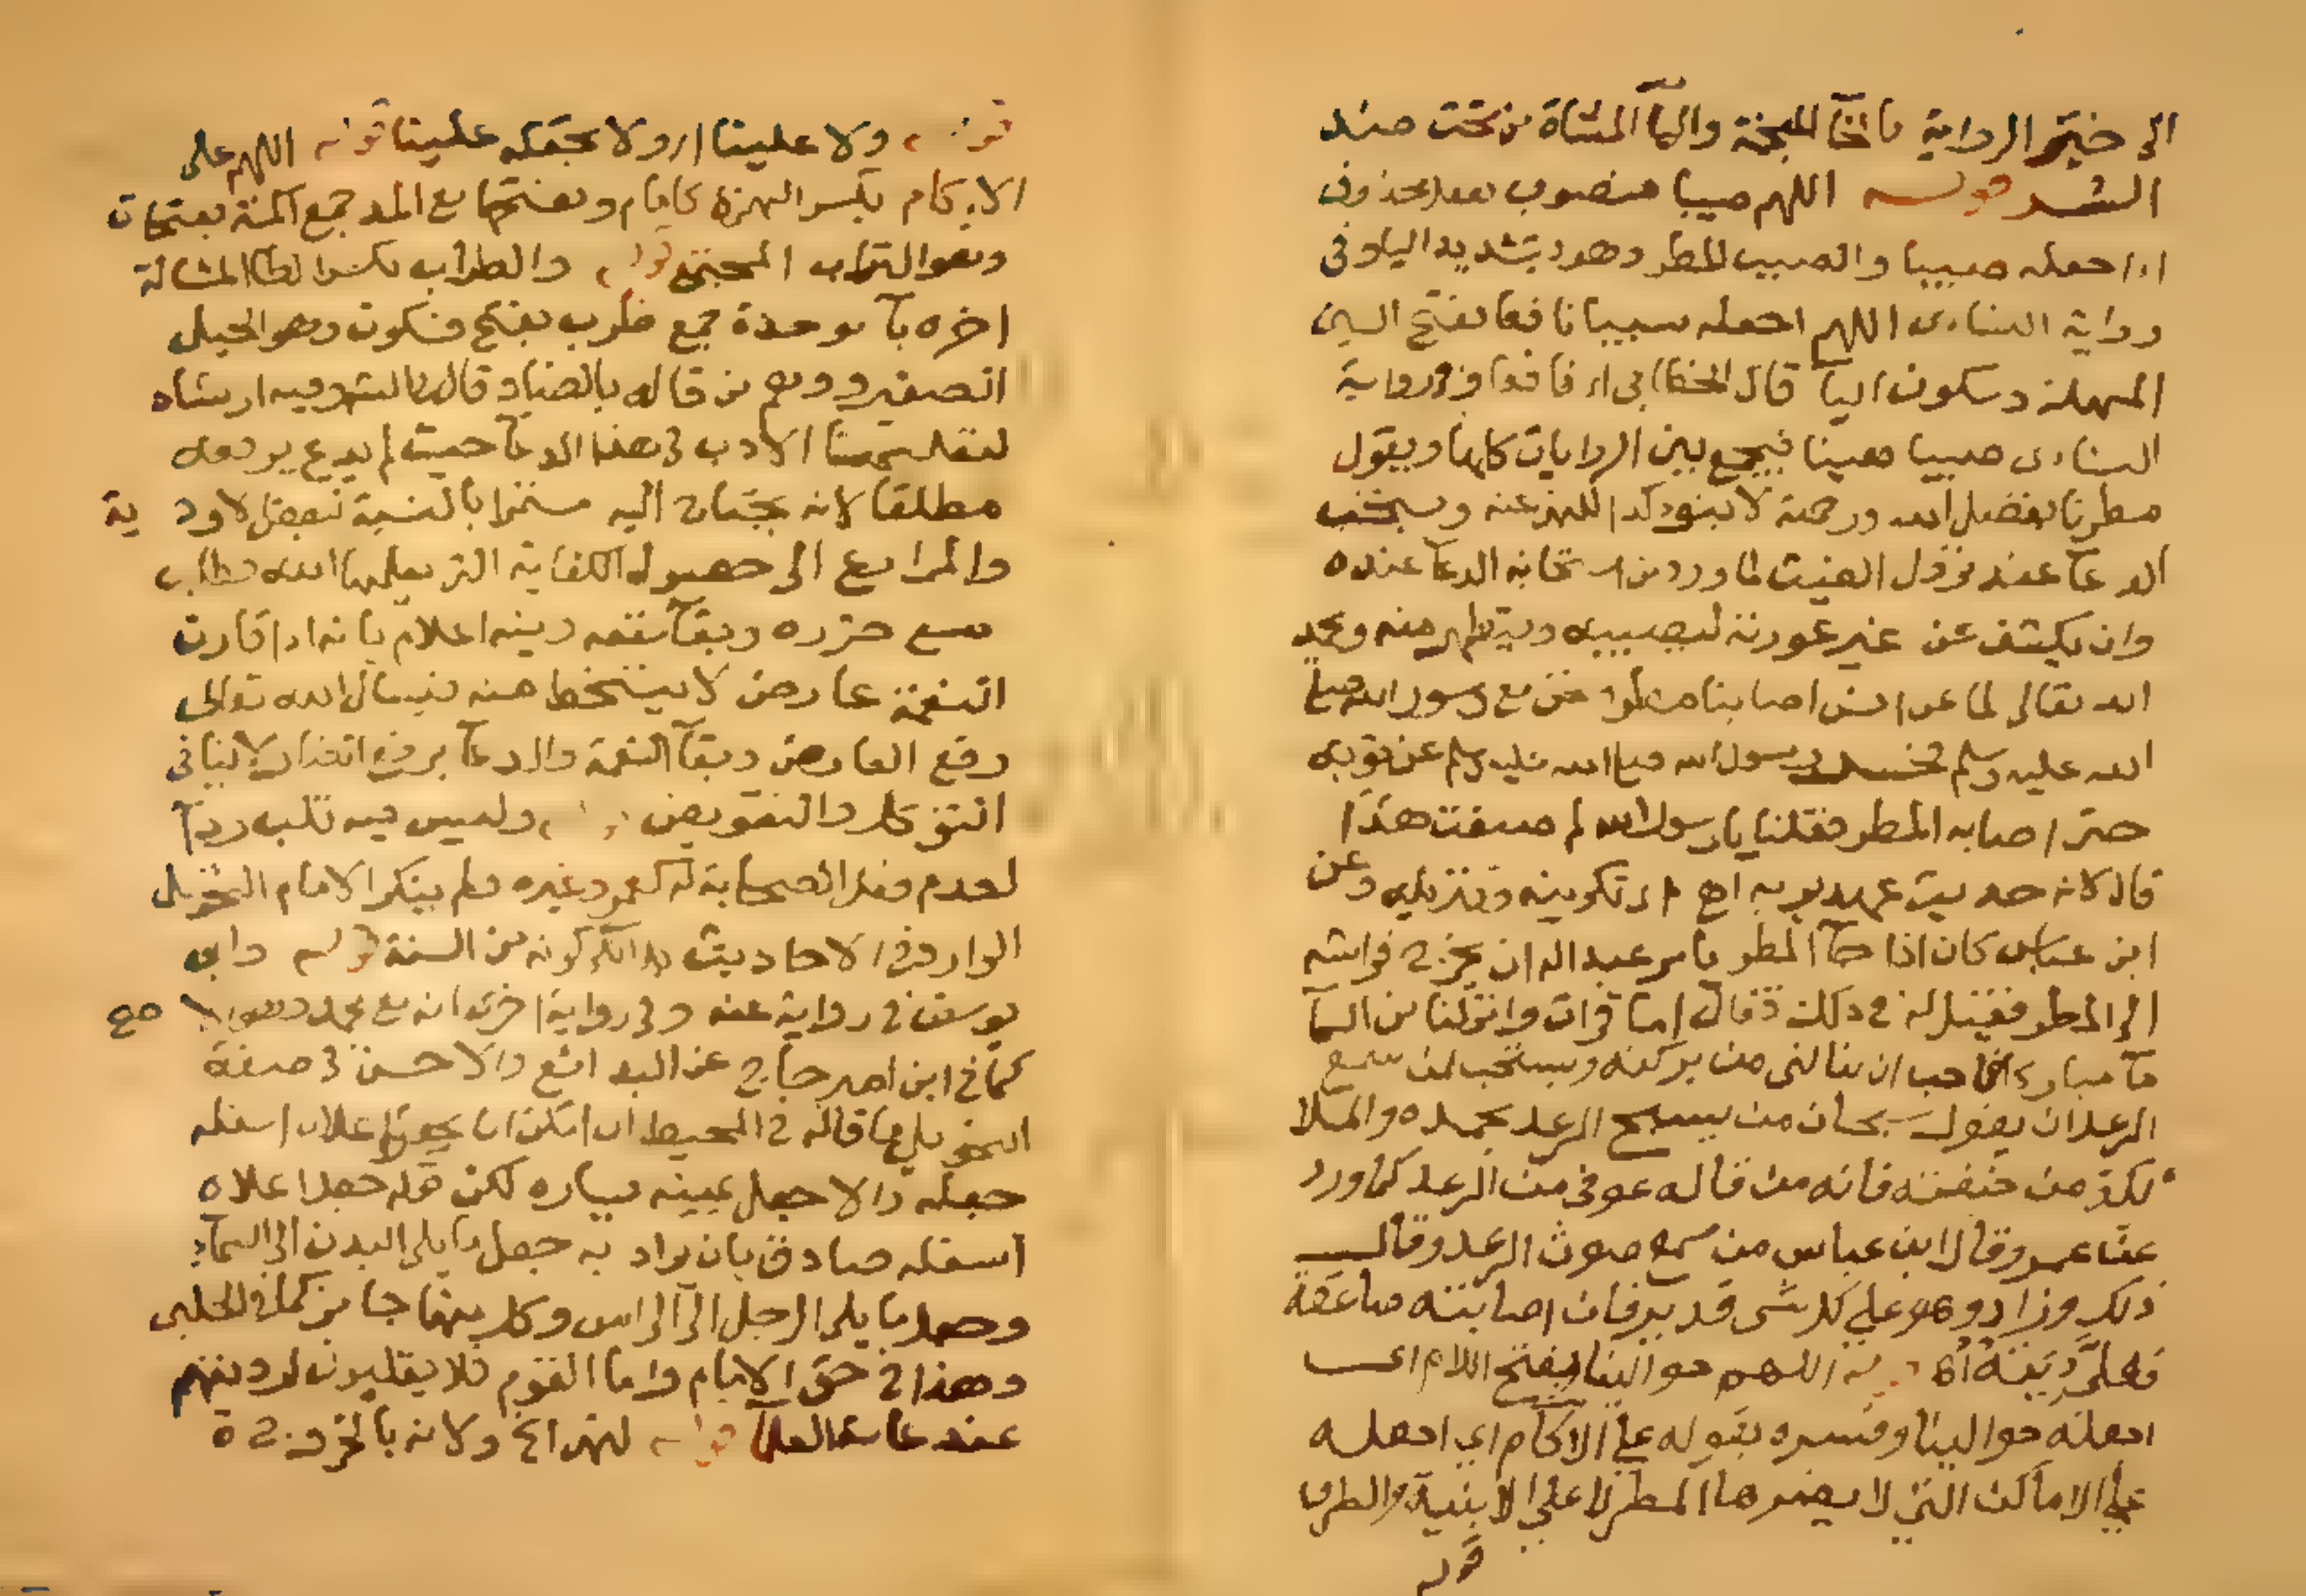 الى خير الرواية بالخا المعجمة واليآ المثناة من تحت ضد
الشر قوله اللهم صيبا منصوب بفعل محذوف
اى اجعله صيبا والصيب المطر وهو بتشديد اليا وفى
رواية النساءى اللهم اجعله سيبا نافعا بفتح السين
المهملة وسكون اليآ قال الخطابى اى نافعا وفى رواية
النساءى صيبا هينا فيجمع بين الروايات كلها ويقول
مطرنا بفضل الله ورحمة لا بنوء كذا للنهى عنه ويستحب
الدعآ عند نزول الغيث لما ورد من استجابة الدعآ عنده
وان يكشف عن غير عورته ليصيبه ويتطهر منه ويحمد
الله تعالى لما عن انس اصابنا مطر ونحن مع رسول الله صلى
الله عليه وسلم فحسر رسول الله صلى الله عليه وسلم عن ثوبه
حتى اصابه المطر فقلنا يا رسول الله لم صنعت هذا
قال لانه حديث عهد بربه اهـ اى تكوينه وتنزيله وعن
ابن عباس كان اذا جآ المطر يامر عبد الله ان يخرج فراشه
الى المطر فقيل له فى ذلك فقال اما قرات وانزلنا من السمآ
مآ مباركا فاحب ان ينالنى من بركته ويستحب لمن سمع
الرعد ان يقول سبحان من يسبح الرعد بحمده والملا
ئكة من خيفته فانه من قاله عوفى من الرعد كما ورد
عن عمر وقال ابن عباس من سمع صوت الرعد وقال
ذلك وزاد وهو على كل شى قدير فان اصابته صاعقة
فعلى ديته اهـ قوله اللهم حوالينا بفتح اللام اى
اجعله حوالينا وفسره بقوله على الاكام اى اجعله
على الاماكن التى لا يضرها المطر لا على الابنية والطرق
قوله
قوله ولا علينا اى ولا تجعله علينا قوله اللهم على
الاكام بكسر الهمزة كاكام وبفتحها مع المد جمع اكمة بفتحات
وهو التراب المجتمع قوله والظراب بكسر الظا المشالة
اخره بآ موحدة جمع ظرب بفتح فسكون وهو الجبل
الصغير ووهم من قاله بالضاد قال فيه ارشاد
الادب فى هذا الدعآ حيث لم يدع برفعه
مطلقا لانه يحتاج اليه مستمرا بالنسبة لبعض الاودية
والمزارع الى حصول الكفاية التى يعلمها الله وطلب
منع ضرره وبقآ نفعه وفيه اعلام بانه اذا قارن
النعمة عارض لا يتسخط منه فيسال الله تعالى
رفع العارض وبقآ النعمة والدعآ برفع الضرر لا ينافى
التوكل والتفويض قوله وليس فيه قلب ردآ
لعدم فعل الصحابة له كعمر وغيره ولم ينكر الامام التحويل
الوارد فى الاحاديث بل انكر كونه من السنة قوله وابى
يوسف فى رواية عنه وفى رواية اخرى انه مع محمد وهو الاصح
كما فى ابن امير حاج عن البدائع والاحسن فى صفة
التحويل ما قاله فى المحيط ان امكن ان يجعل اعلاه اسفله
جعله والا جعل يمينه يساره لكن قوله جعل اعلاه
اسفله صادق بان يراد به جعل ما يلى البدن الى السمآ
وجعل ما يلى الرجل الى الراس وكل منهما جائز كما فى الحلبى
وهذا فى حق الامام واما القوم فلا يقلبون ارديتهم
عند عامة العلمآ قوله لنهرائخ ولانه بالخروج